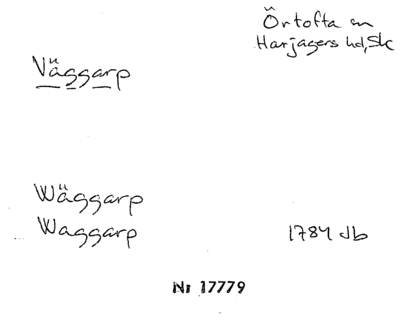 Örtofta sn
Harjagers hd, Sk
Väggarp
Wäggarp
Waggarp 1784 Jb
Nr 17779